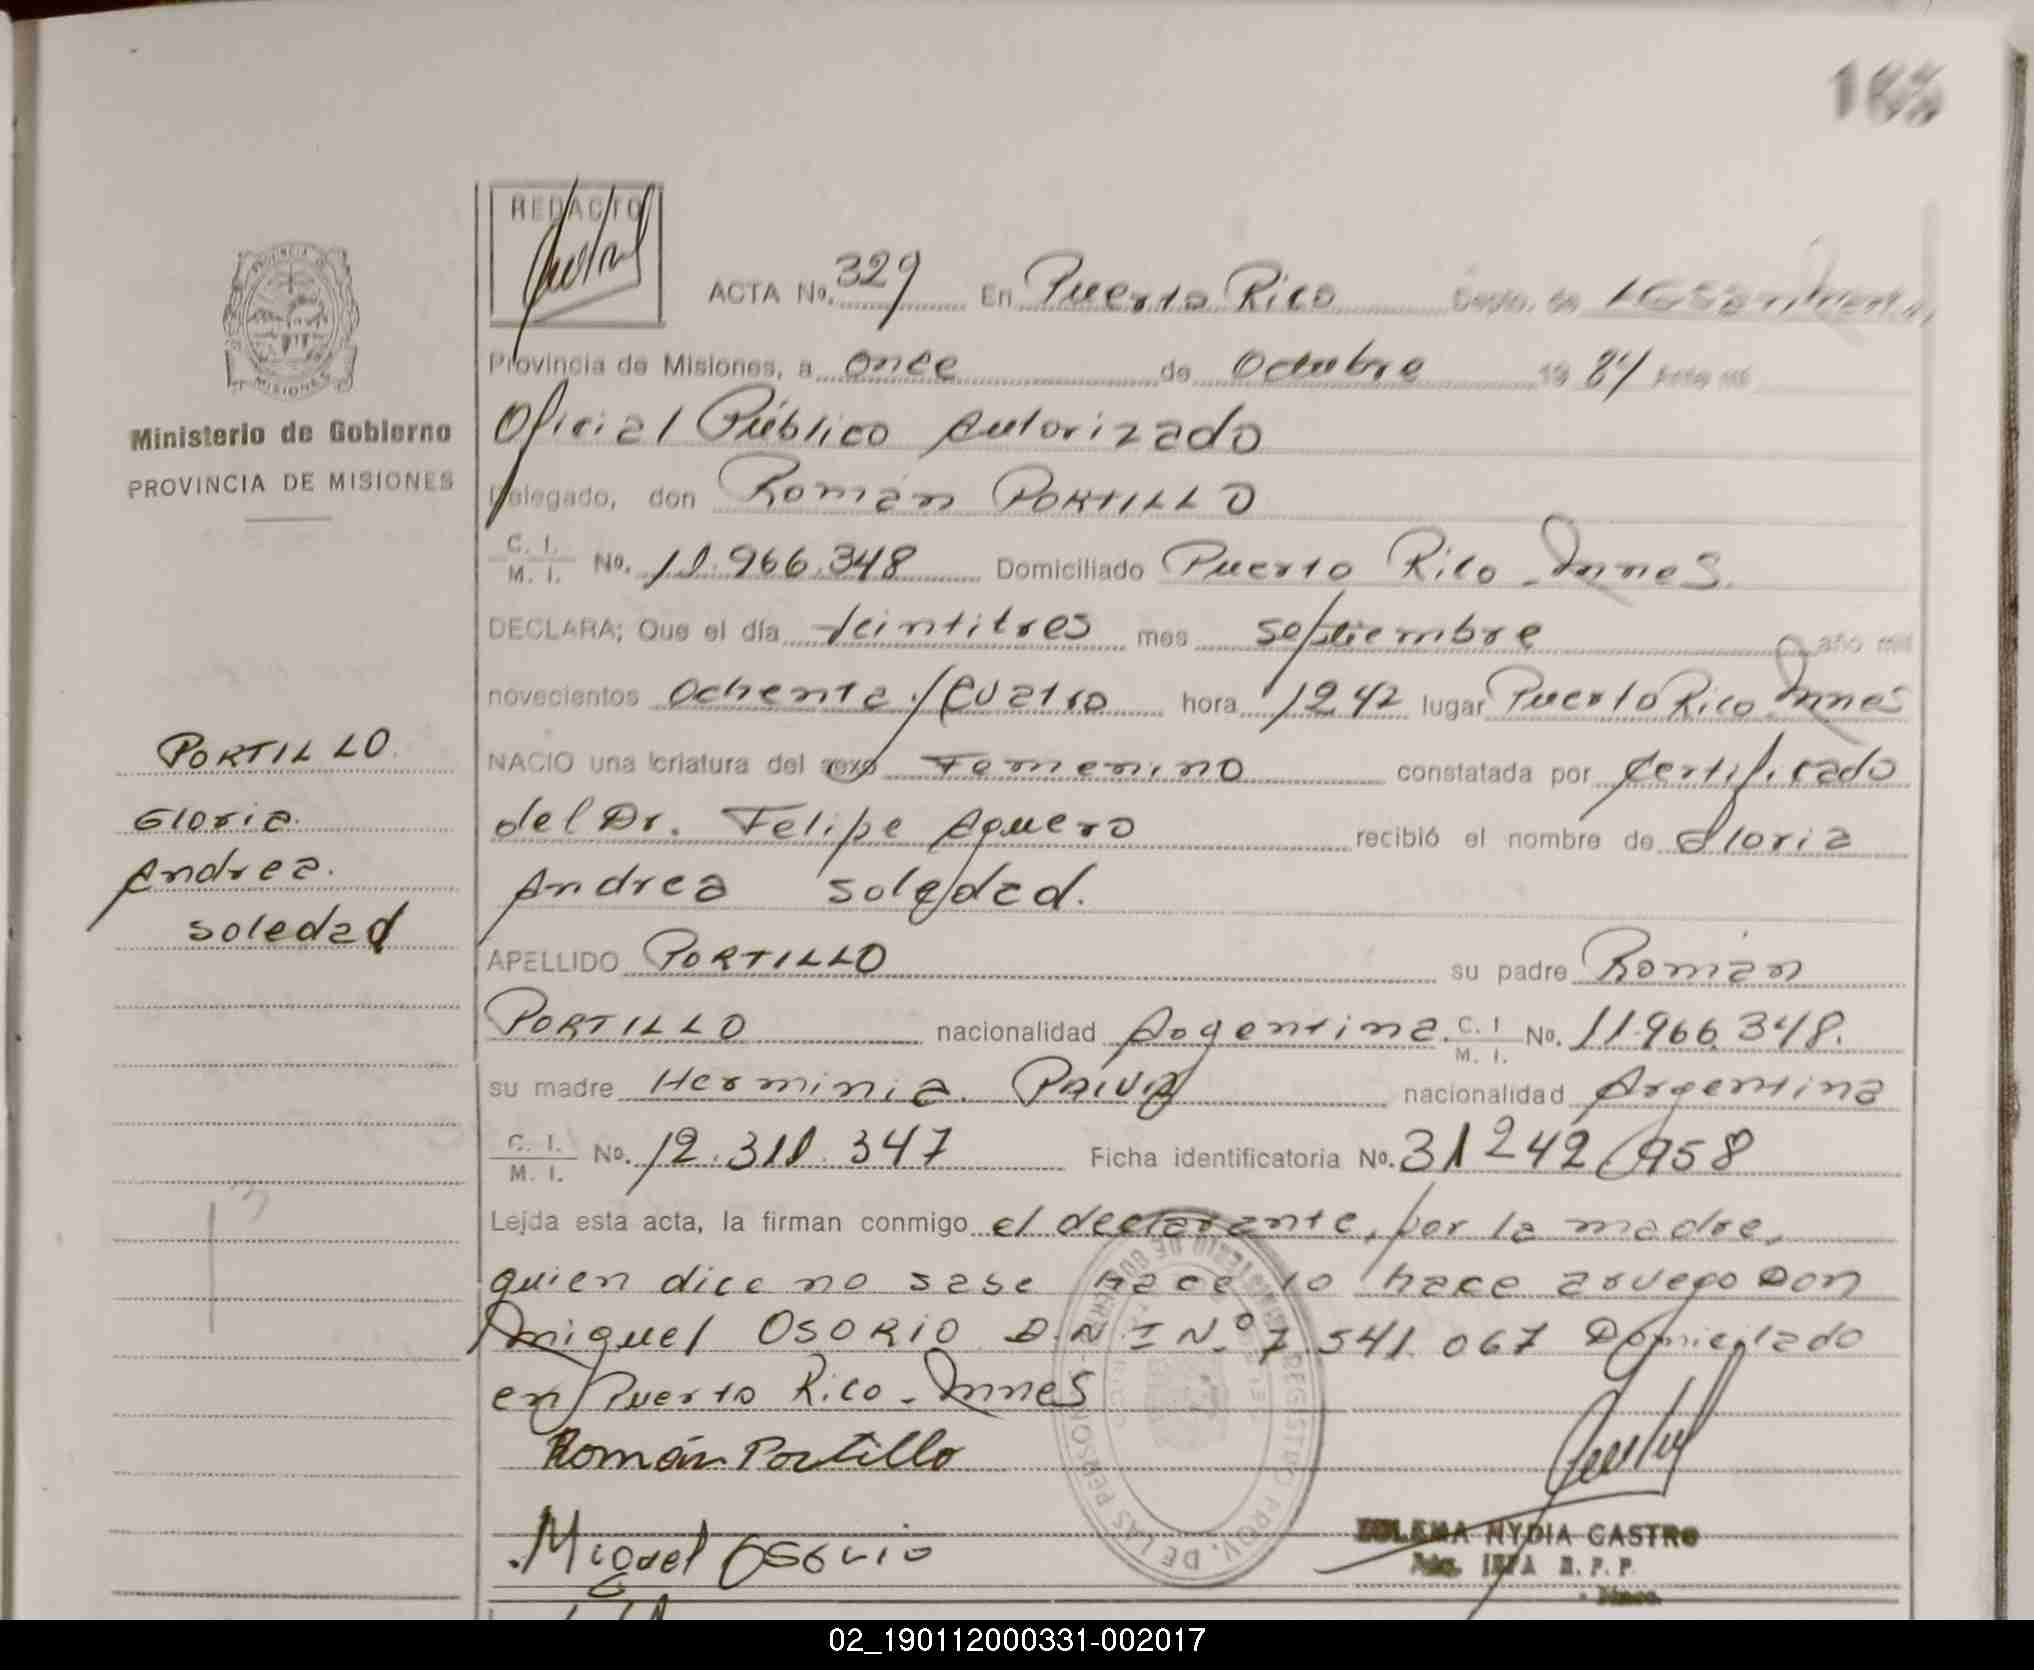 REDACTO
ACTA No. 329 En Puerto Rico Depto. de
Provincia de Misiones, a once de Octubre 19 84
Oficial Público Autorizado
Delegado, don Román PORTILLO
C. I. / M. I. No. 11.966.348 Domiciliado Puerto Rico - Mnes.
DECLARA; Que el día Veintitres mes septiembre año mil
novecientos ochenta y Cuatro hora 12 42 lugar Puerto Rico Mnes
NACIO una criatura del sexo Femenino constatada por Certificado
del Dr. Felipe Aguero recibió el nombre de Gloria
Andrea Soledad.
APELLIDO PORTILLO su padre Román
PORTILLO nacionalidad Argentina. C. I / M. I. No. 11.966.348.
su madre Herminia. PAIVA nacionalidad Argentina
C. I. / M. I. No. 12.311.347 Ficha identificatoria No. 31242958
Lejda esta acta, la firman conmigo el declarante, por la madre,
quien dice no sabe hace lo hace aruego Don
Miguel OSORIO D.N.I N.º 7.541.067 Domicilado
en Puerto Rico - Mnes
Román Portillo
Miguel Osorio
NYDIA CASTRO
PROVINCIA DE MISIONES
Ministerio de Gobierno
PROVINCIA DE MISIONES
PORTILLO.
Gloria.
Andrea.
Soledad
REGISTRO PROV. DE LAS PERSONAS
02_190112000331-002017